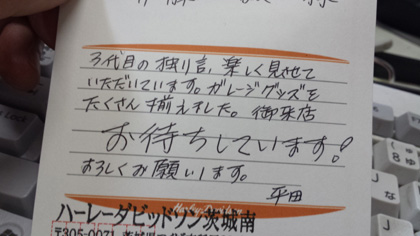 3代目の独り言、楽しく見させて
いただいています。ガレージグッズを
たくさん揃えました。御来店
お待ちしています!
よろしくお願いします。
平田
ハーレーダビッドソン茨城南
〒305-0071